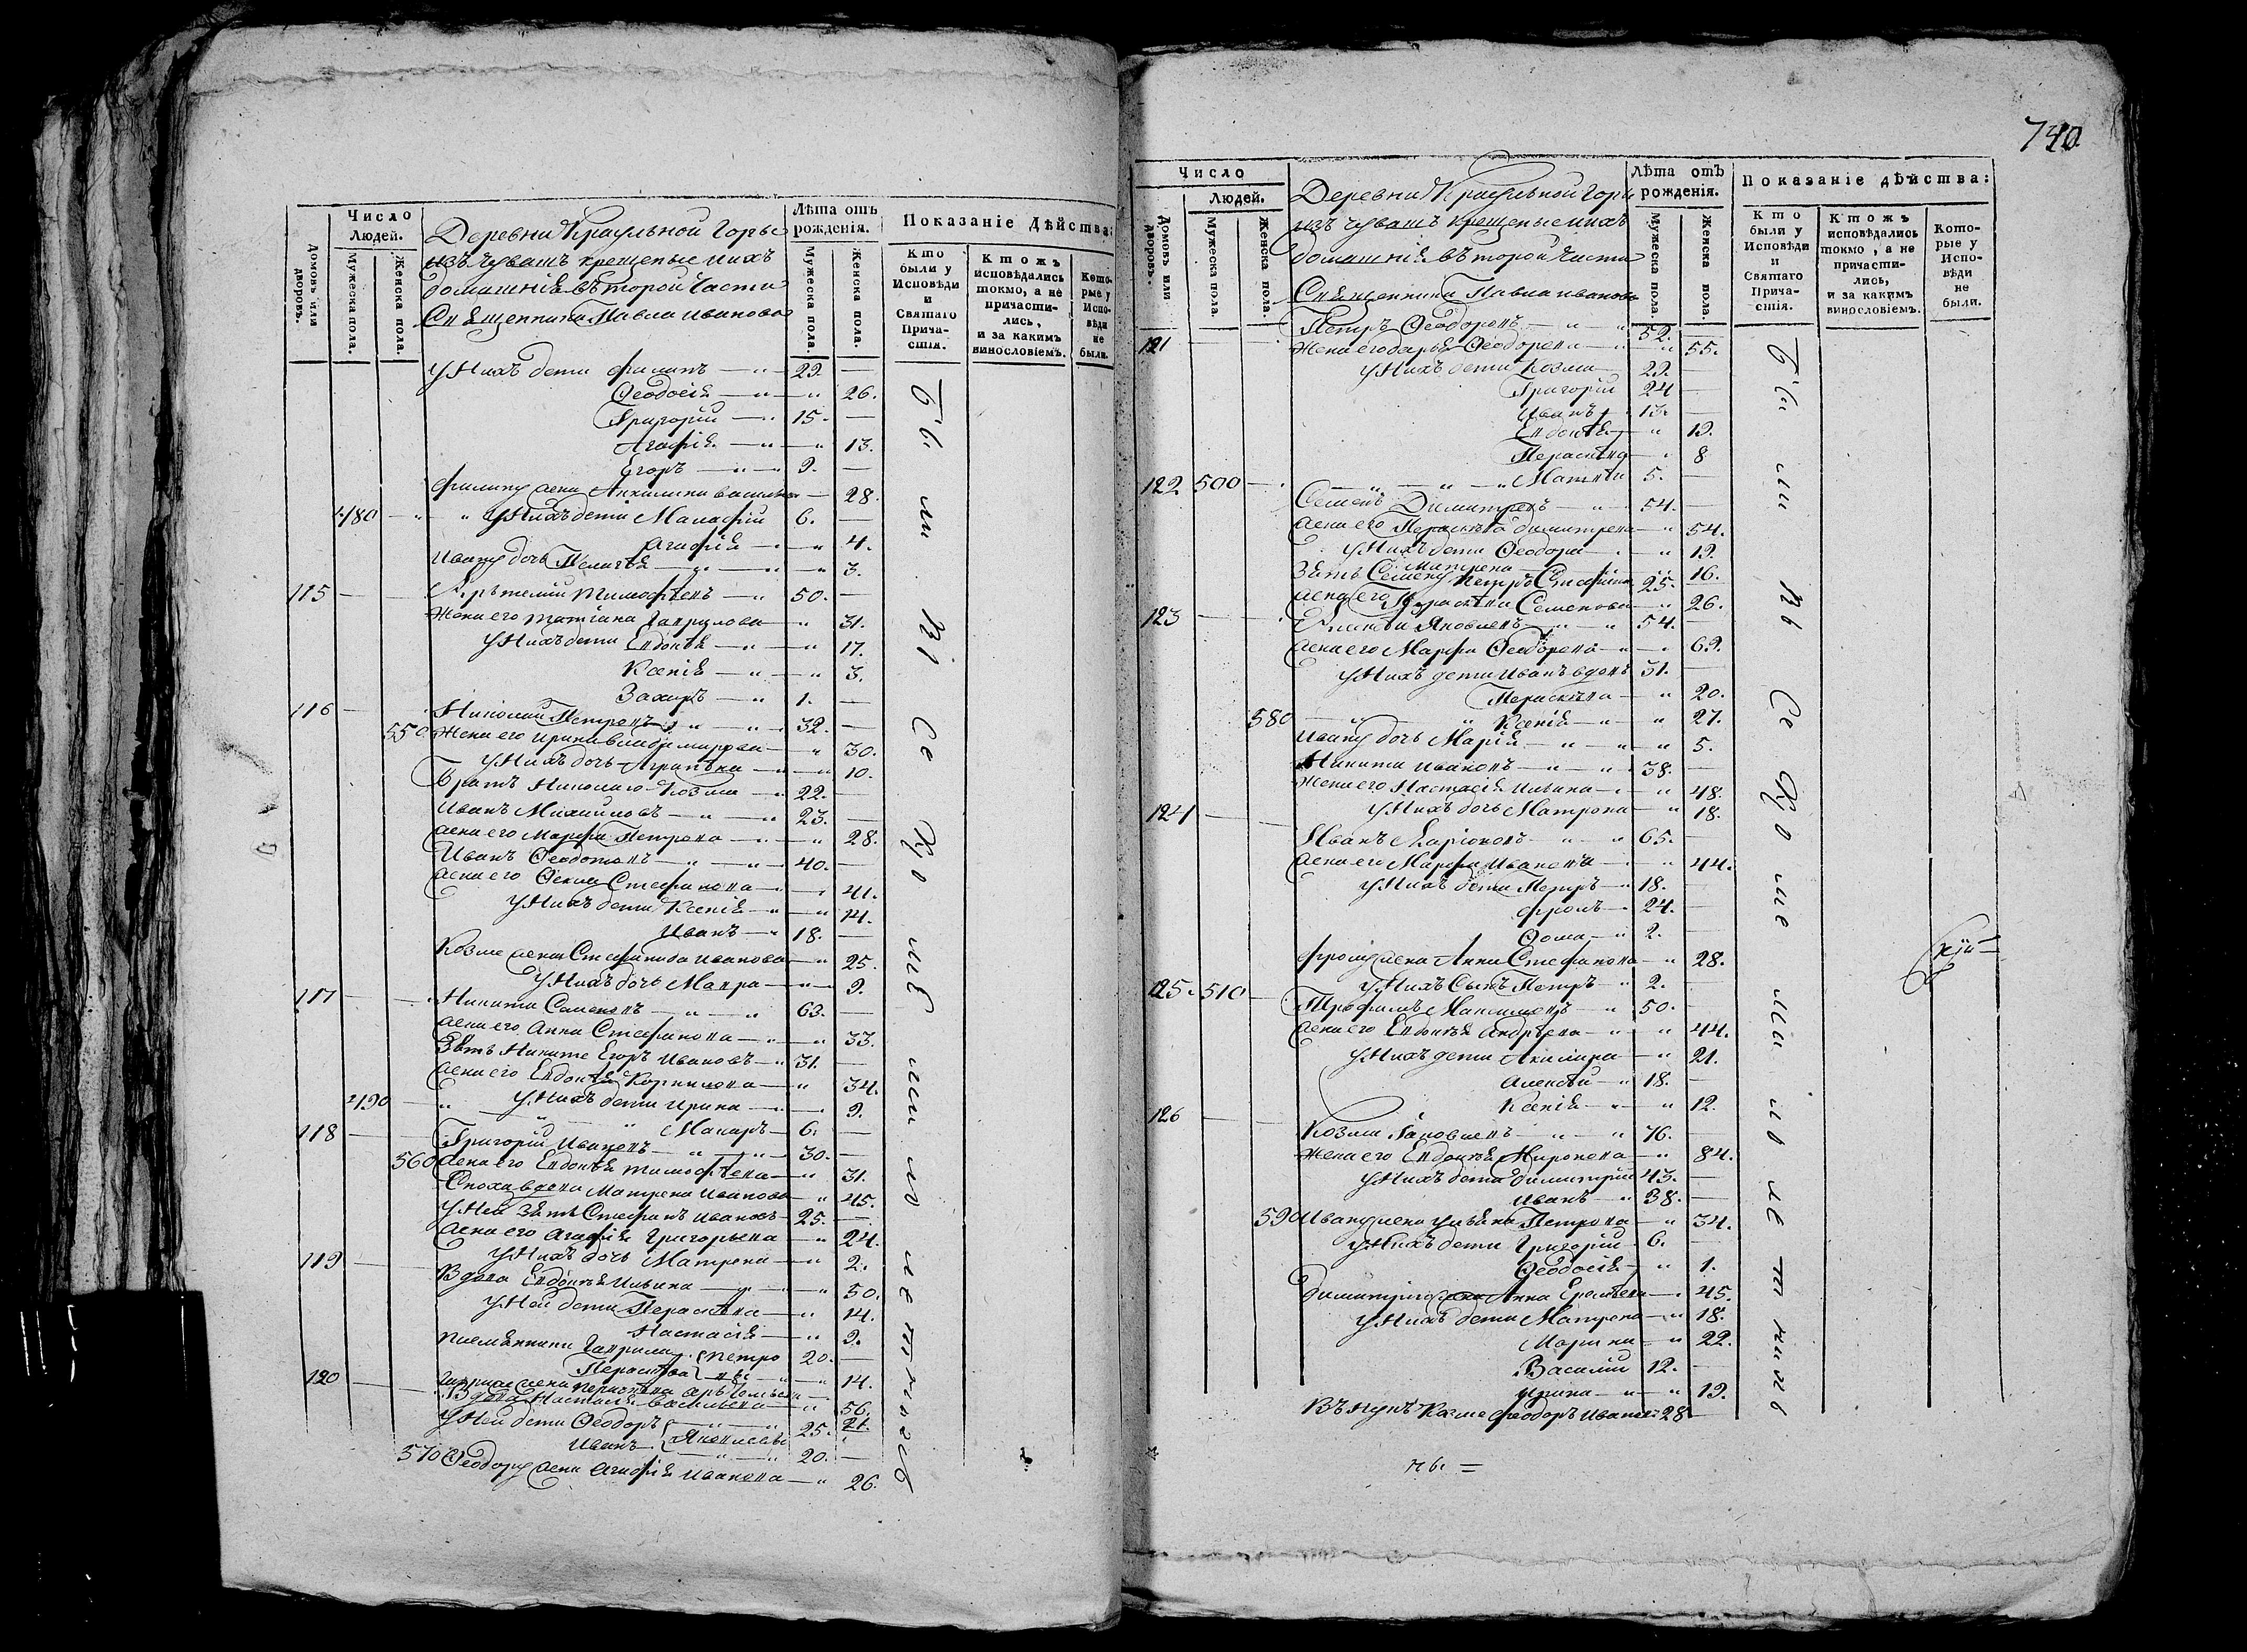 Число
Людей.
Домовъ или дворовъ.
Мужеска пола.
Женска пола.
Деревни Краульной Горы
изъ Чувашъ крещеные и ихъ
домашнія въ второй Части
Священника Павла Иванова
Лѣта отъ рожденія.
Мужеска пола.
Женска пола.
Показаніе Дѣйства:
Кто были у Исповѣди и Святаго Причастія.
Ктожъ исповѣдались токмо, а не причастились, и за какимъ винословіемъ.
Которые у Исповѣди не были.
У Нихъ дети Филипъ 29.
Ѳеодосія 26.
Григорій 15.
Агафія 13.
Егоръ 9.
Филипу жена Васильева 28.
480 У Нихъ дети Малафій 6.
Агафія 4.
Ивану дочь Пелагѣя 3.
115 Артемій Тимофѣевъ 50.
Жена его Татіана Гаврилова 31.
У Нихъ дети Евдокѣя 17.
Ксенія 3.
Захаръ 1.
116 Николай Петровъ 32.
550 Жена его Ирина Владимирова 30.
У Нихъ дочь 10.
Братъ Николаю Козма 22.
Иванъ Михайловъ 23.
Жена его Марфа Петрова 28.
Иванъ Ѳеодотовъ 40.
Жена его Ѳекла Стефанова 41.
У Нихъ дети Ксенія 14.
Иванъ 18.
Козме жена Стефанида Иванова 25.
У Нихъ дочь Мавра 2.
117 Никита Семеновъ 63.
Жена его Анна Стефанова 33.
Зять Никите Егоръ Ивановъ 31.
Жена его Евдокѣя Корнилова 34.
490 У Нихъ дети Ирина 9.
Макаръ 6.
118 Григорій Ивановъ 30.
560 Жена его Евдокѣя Тимофѣева 31.
Сноха вдова Матрена Иванова 45.
У Ней Зять Стефанъ Ивановъ 25.
Жена его Агафія Григорьева 24.
У Нихъ дочь Матрена 2.
119 Вдова Евдокѣя Ильина 50.
У Ней дети Параскѣва 14.
Настасія 9.
Племянники Гаврила Петро 20.
Параскѣва вы 14.
120 Вдова Настасія Васильева 56.
У Ней дети Ѳеодоръ 25.
Иванъ 20.
570 Ѳеодору жена Агафія Иванова 26.
Были Вси Кроме Малолетнихъ
740
Число
Людей.
Домовъ или дворовъ.
Мужеска пола.
Женска пола.
Деревни Краульной Горы
изъ Чувашъ крещеные и ихъ
домашнія въ второй Части
Священника Павла Иванова
Лѣта отъ рожденія.
Мужеска пола.
Женска пола.
Показаніе дѣйства:
Кто были у Исповѣди и Святаго Причастія.
Ктожъ исповѣдались токмо, а не причастились, и за какимъ винословіемъ.
Которые у Исповѣди не были.
121 Петръ Ѳеодоровъ 52.
Жена его Дарья Ѳеодорова 55.
У Нихъ дети Козма 29.
Григорій 24
Иванъ 13.
Евдокѣя 19.
Параскѣва 8
122 500 Матвѣй 5.
Семенъ Димитревъ 54.
Жена его Параскѣва Димитрева 54.
У Нихъ дети Ѳеодора 19.
Матрена 16.
Зять Семену Петръ Стефановъ 25.
Жена его Параскѣва Семенова 26.
123 Яковлевъ 54.
Жена его Марфа Ѳеодорова 69.
У Нихъ дети Иванъ вдовъ 31.
Параскѣва 20.
580 Ксенія 27.
Ивану дочь Марія 5.
Никита Ивановъ 38.
Жена его Настасія Ильина 48.
У Нихъ дочь Матрона 18.
124 Иванъ Ларіоновъ 65.
Жена его Марфа Иванова 44.
У Нихъ дети Петръ 18.
Фролъ 24.
Ѳома 2.
Фролу жена Анна Стефанова 28.
125. 510 У Нихъ Сынъ Петръ 2.
Трофимъ Максимовъ 50.
Жена его Евдокѣя Андрѣева 44.
У Нихъ дети Акилина 21.
Алексѣй 18.
Ксенія 12.
126 Козма Яковлевъ 76.
Жена его Евдокѣя Миронова 84.
У Нихъ дети Димитрій 43.
Иванъ 38.
590 Ивану жена Ульяна Петрова 34.
У Нихъ дети Григорій 6.
Ѳеодосія 1.
Димитрію жена Анна Еремѣева 45.
У Нихъ дети Матрона 18.
Марина 22.
Василій 12.
Ирина 19.
Внукъ Козме Ѳеодоръ Ивановъ 28
Были Вси Кроме Малолетнихъ